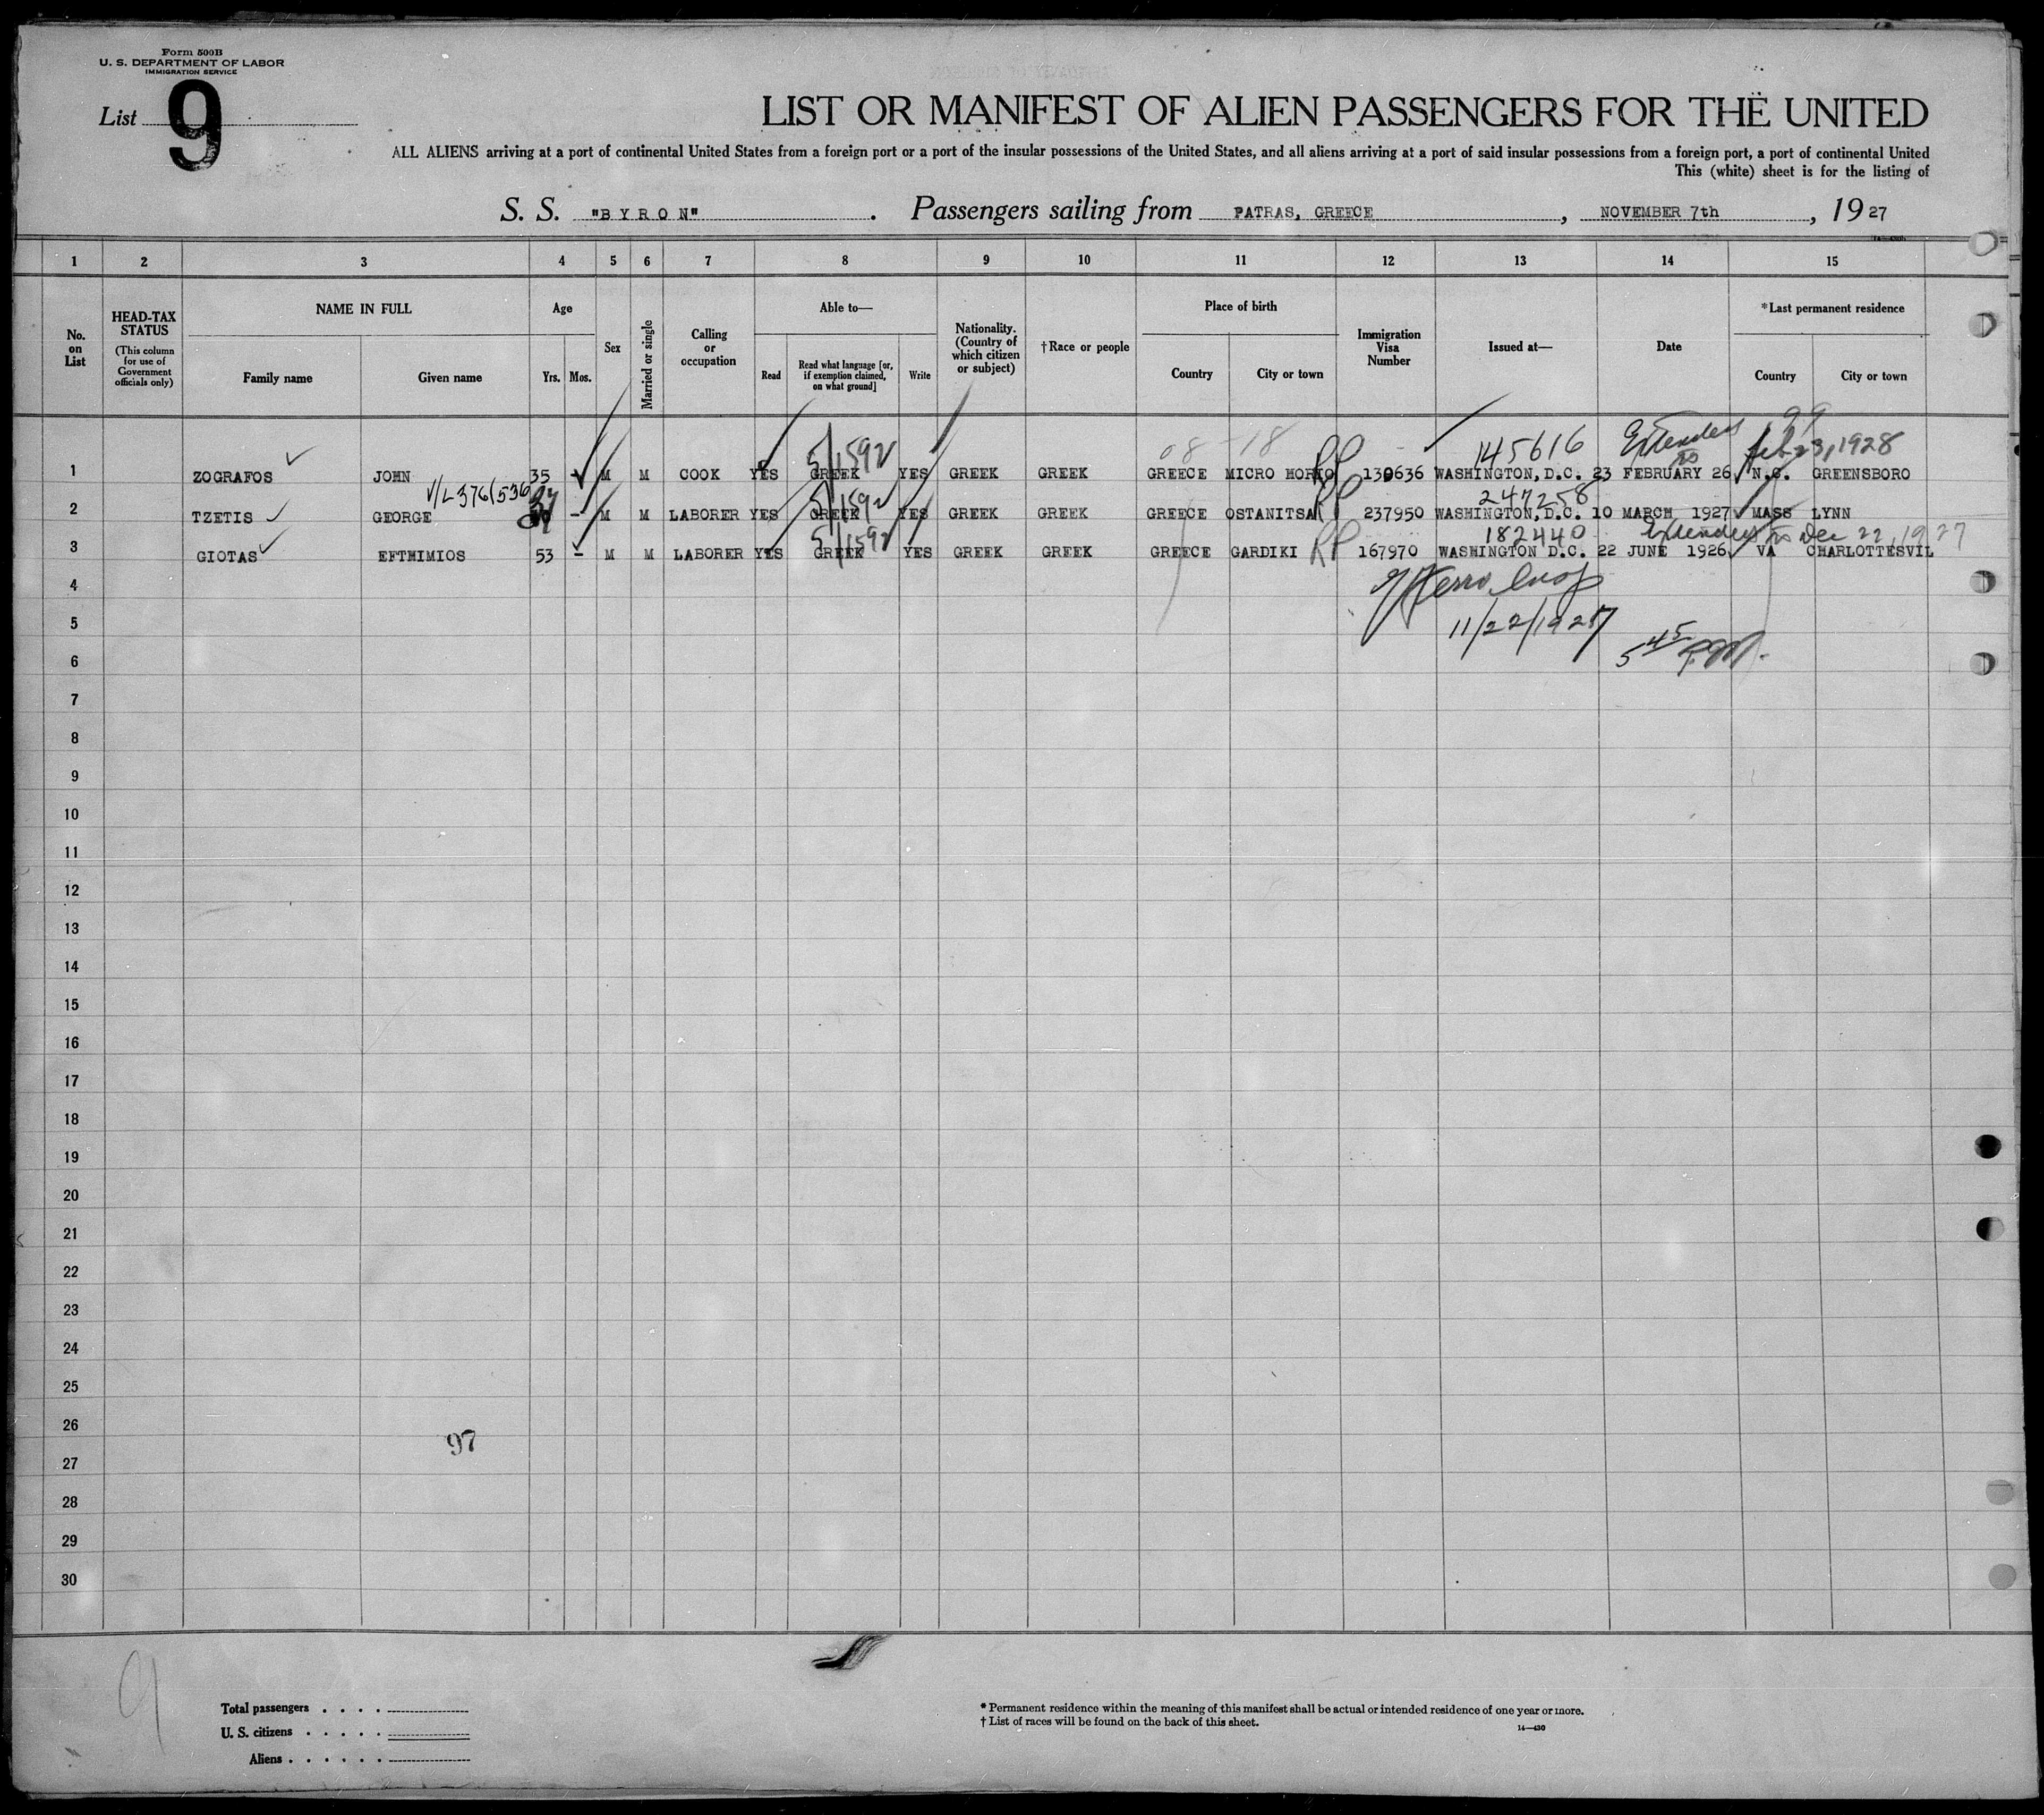 Form 500B
U. S. DEPARTMENT OF LABOR
IMMIGRATION SERVICE
List 9
LIST OR MANIFEST OF ALIEN PASSENGERS FOR THE UNITED
ALL ALIENS arriving at a port of continental United States from a foreign port or a port of the insular possessions of the United States, and all aliens arriving at a port of said insular possessions from a foreign port, a port of continental United
This (white) sheet is for the listing of
S. S. "BYRON". Passengers sailing from PATRAS, GREECE, NOVEMBER 7th, 1927
1 2 3 4 5 6 7 8 9 10 11 12 13 14 15
No. on List
HEAD-TAX STATUS
(This column for use of Government officials only)
NAME IN FULL
Family name Given name
Age
Yrs. Mos.
Sex
Married or single
Calling or occupation
Able to—
Read Read what language [or, if exemption claimed, on what ground] Write
Nationality. (Country of which citizen or subject)
†Race or people
Place of birth
Country City or town
Immigration Visa Number
Issued at—
Date
*Last permanent residence
Country City or town
08 -18 99
5/1592 145616 Extended to Feb 23, 1928
1 ZOGRAFOS JOHN 35 M M COOK YES GREEK YES GREEK GREEK GREECE MICRO HORIO RP 130636 WASHINGTON, D.C. 23 FEBRUARY 26 N.C. GREENSBORO
V/L 376/536 5/1592 247258
2 TZETIS GEORGE - M M LABORER YES GREEK YES GREEK GREEK GREECE OSTANITSA RP 237950 WASHINGTON, D.C. 10 MARCH 1927 MASS LYNN
5/1592 182440 Extended to Dec 22, 1927
3 GIOTAS EFTHIMIOS 53 - M M LABORER YES GREEK YES GREEK GREEK GREECE GARDIKI RP 167970 WASHINGTON D.C. 22 JUNE 1926 VA CHARLOTTESVIL
4
5 11/22/1927
6 5 45 P.M.
7
8
9
10
11
12
13
14
15
16
17
18
19
20
21
22
23
24
25
26 97
27
28
29
30
9
Total passengers . . . .
U. S. citizens . . . . .
Aliens . . . . . .
* Permanent residence within the meaning of this manifest shall be actual or intended residence of one year or more.
† List of races will be found on the back of this sheet.
14—430